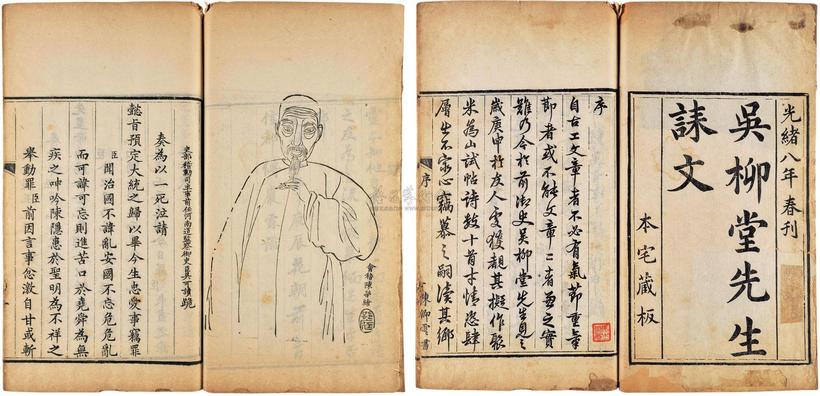 光緒八年春刊
吳柳堂先生
誄文
本宅藏板
序
自古工文章者不必有氣節重氣
節者或不能文章二者兼之實
難乃今於前御史吳柳堂先生見之
歲庚申於友人處獲覩其擬作聚
米為山試帖詩數十首才情恣肆
層出不窮心竊慕之嗣讀其鄉
序
陳卿雲書
會稽陳繪
吏部稽勳司主事前任河南道監察御史臣吳可讀跪
奏為以一死泣請
懿旨預定大統之歸以畢今生忠愛事竊罪
臣聞治國不諱亂安國不忘危危亂
而可諱可忘則進苦口於堯舜為無
疾之呻吟陳隱患於聖明為不祥之
舉動罪臣前因言事忿激自甘或斬